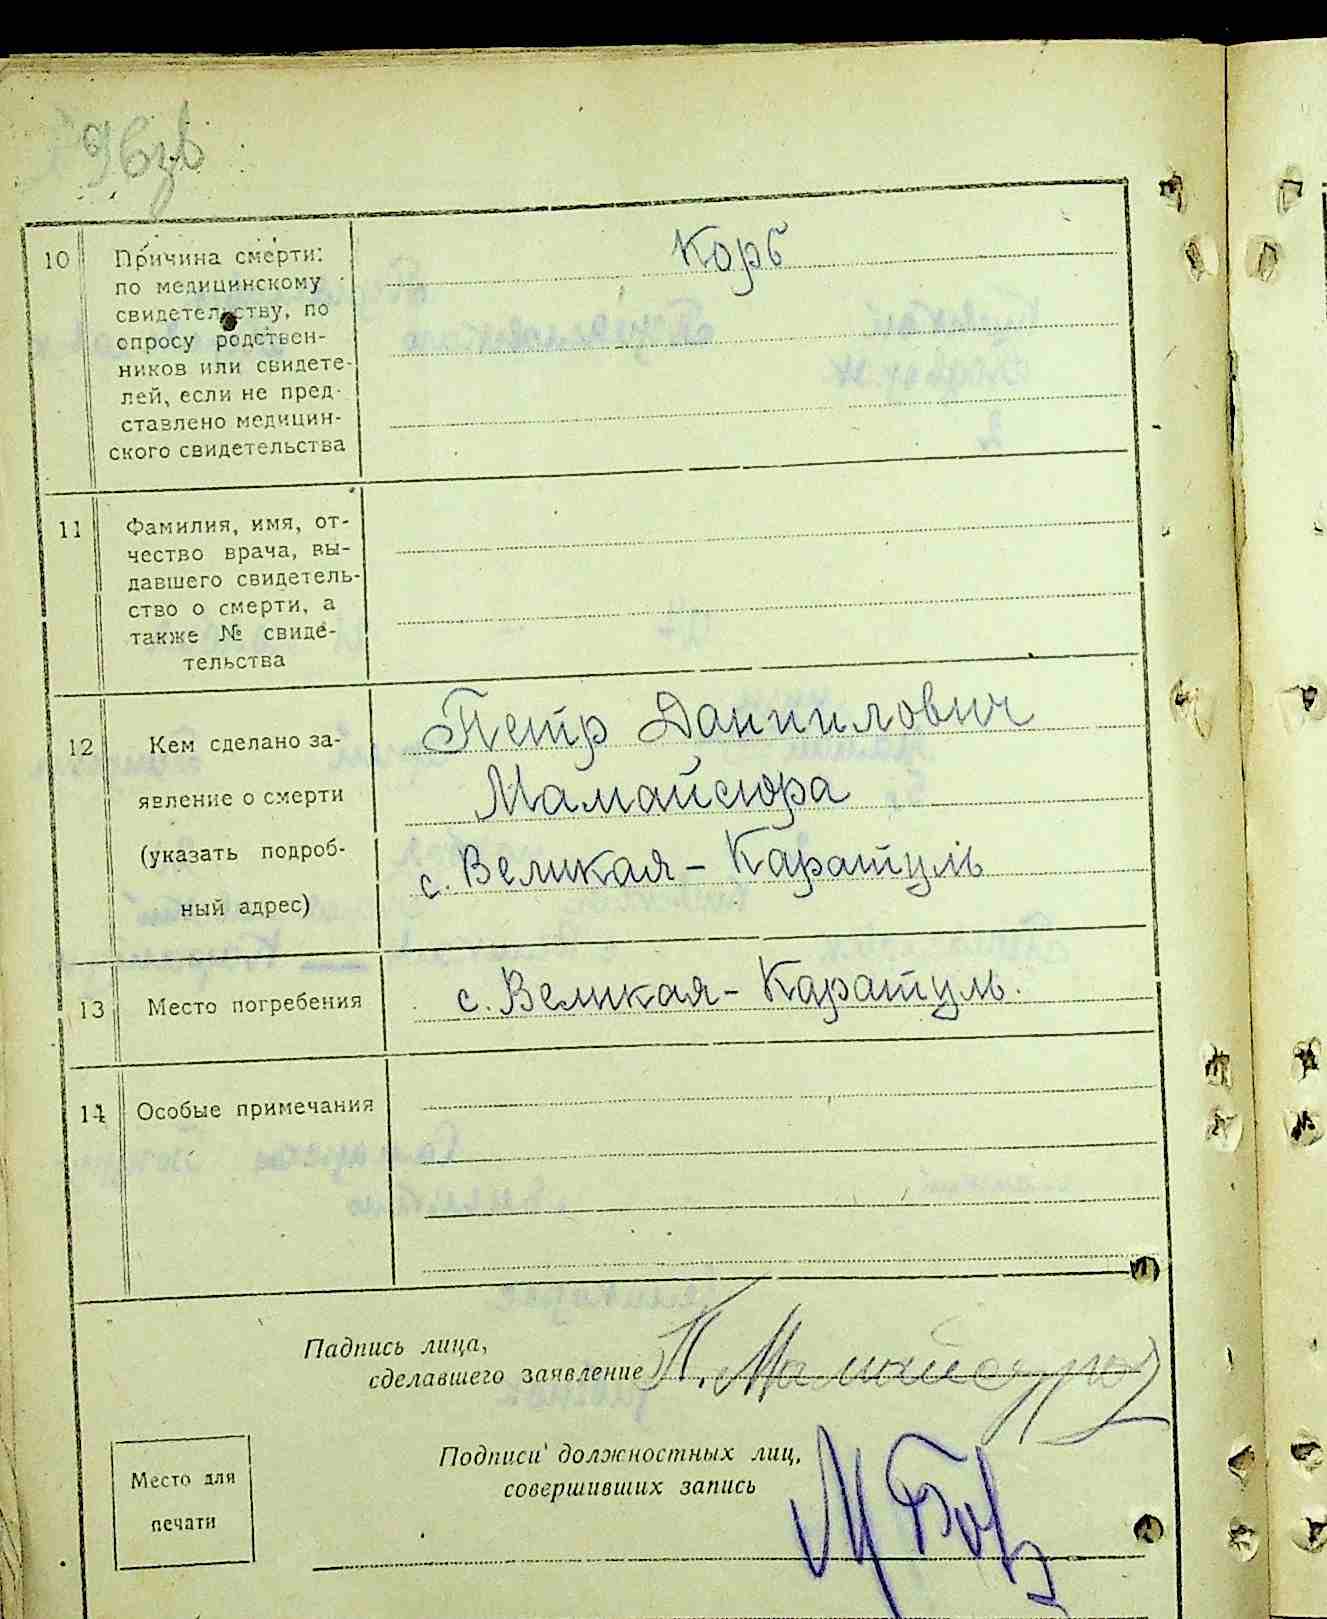 10
Причина смерти:
по медицинскому
свидетельству, по
опросу родствен-
ников или свидете-
лей, если не пред-
ставлено медицин-
ского свидетельства
Корь
11
Фамилия, имя, от-
чество врача, вы-
давшего свидетель-
ство о смерти, а
также № свиде-
тельства
12
Кем сделано за-
явление о смерти
(указать подроб-
ный адрес)
Петр Даниилович
Мамайсюра
с. Великая - Каратуль
13
Место погребения
с. Великая - Каратуль.
14
Особые примечания
Падпись лица,
сделавшего заявление П. Мамайсура
Подписи должностных лиц,
совершивших запись
Место для
печати